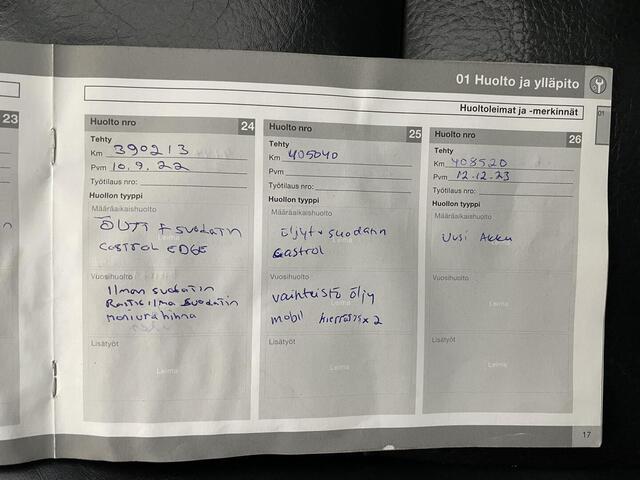 01 Huolto ja ylläpito
Huoltoleimat ja -merkinnät
01
23
Huolto nro 24
Tehty
Km 390213
Pvm 10.9.22
Työtilaus nro:
Huollon tyyppi
Määräaikaishuolto
+ suodatin
Leima
CASTROL EDGE
Vuosihuolto
Ilman suodatin
Raitis ilma suodatin
moniurahihna
Lisätyöt
Leima
Huolto nro 25
Tehty
Km 405040
Pvm
Työtilaus nro:
Huollon tyyppi
Määräaikaishuolto
öljyt + suodatin
Leima
Castrol
Vuosihuolto
vaihteisto öljy
Leima
mobil x 2
Lisätyöt
Leima
Huolto nro 26
Tehty
Km 408520
Pvm 12.12.23
Työtilaus nro:
Huollon tyyppi
Määräaikaishuolto
Uusi Akku
Leima
Vuosihuolto
Leima
Lisätyöt
Leima
17